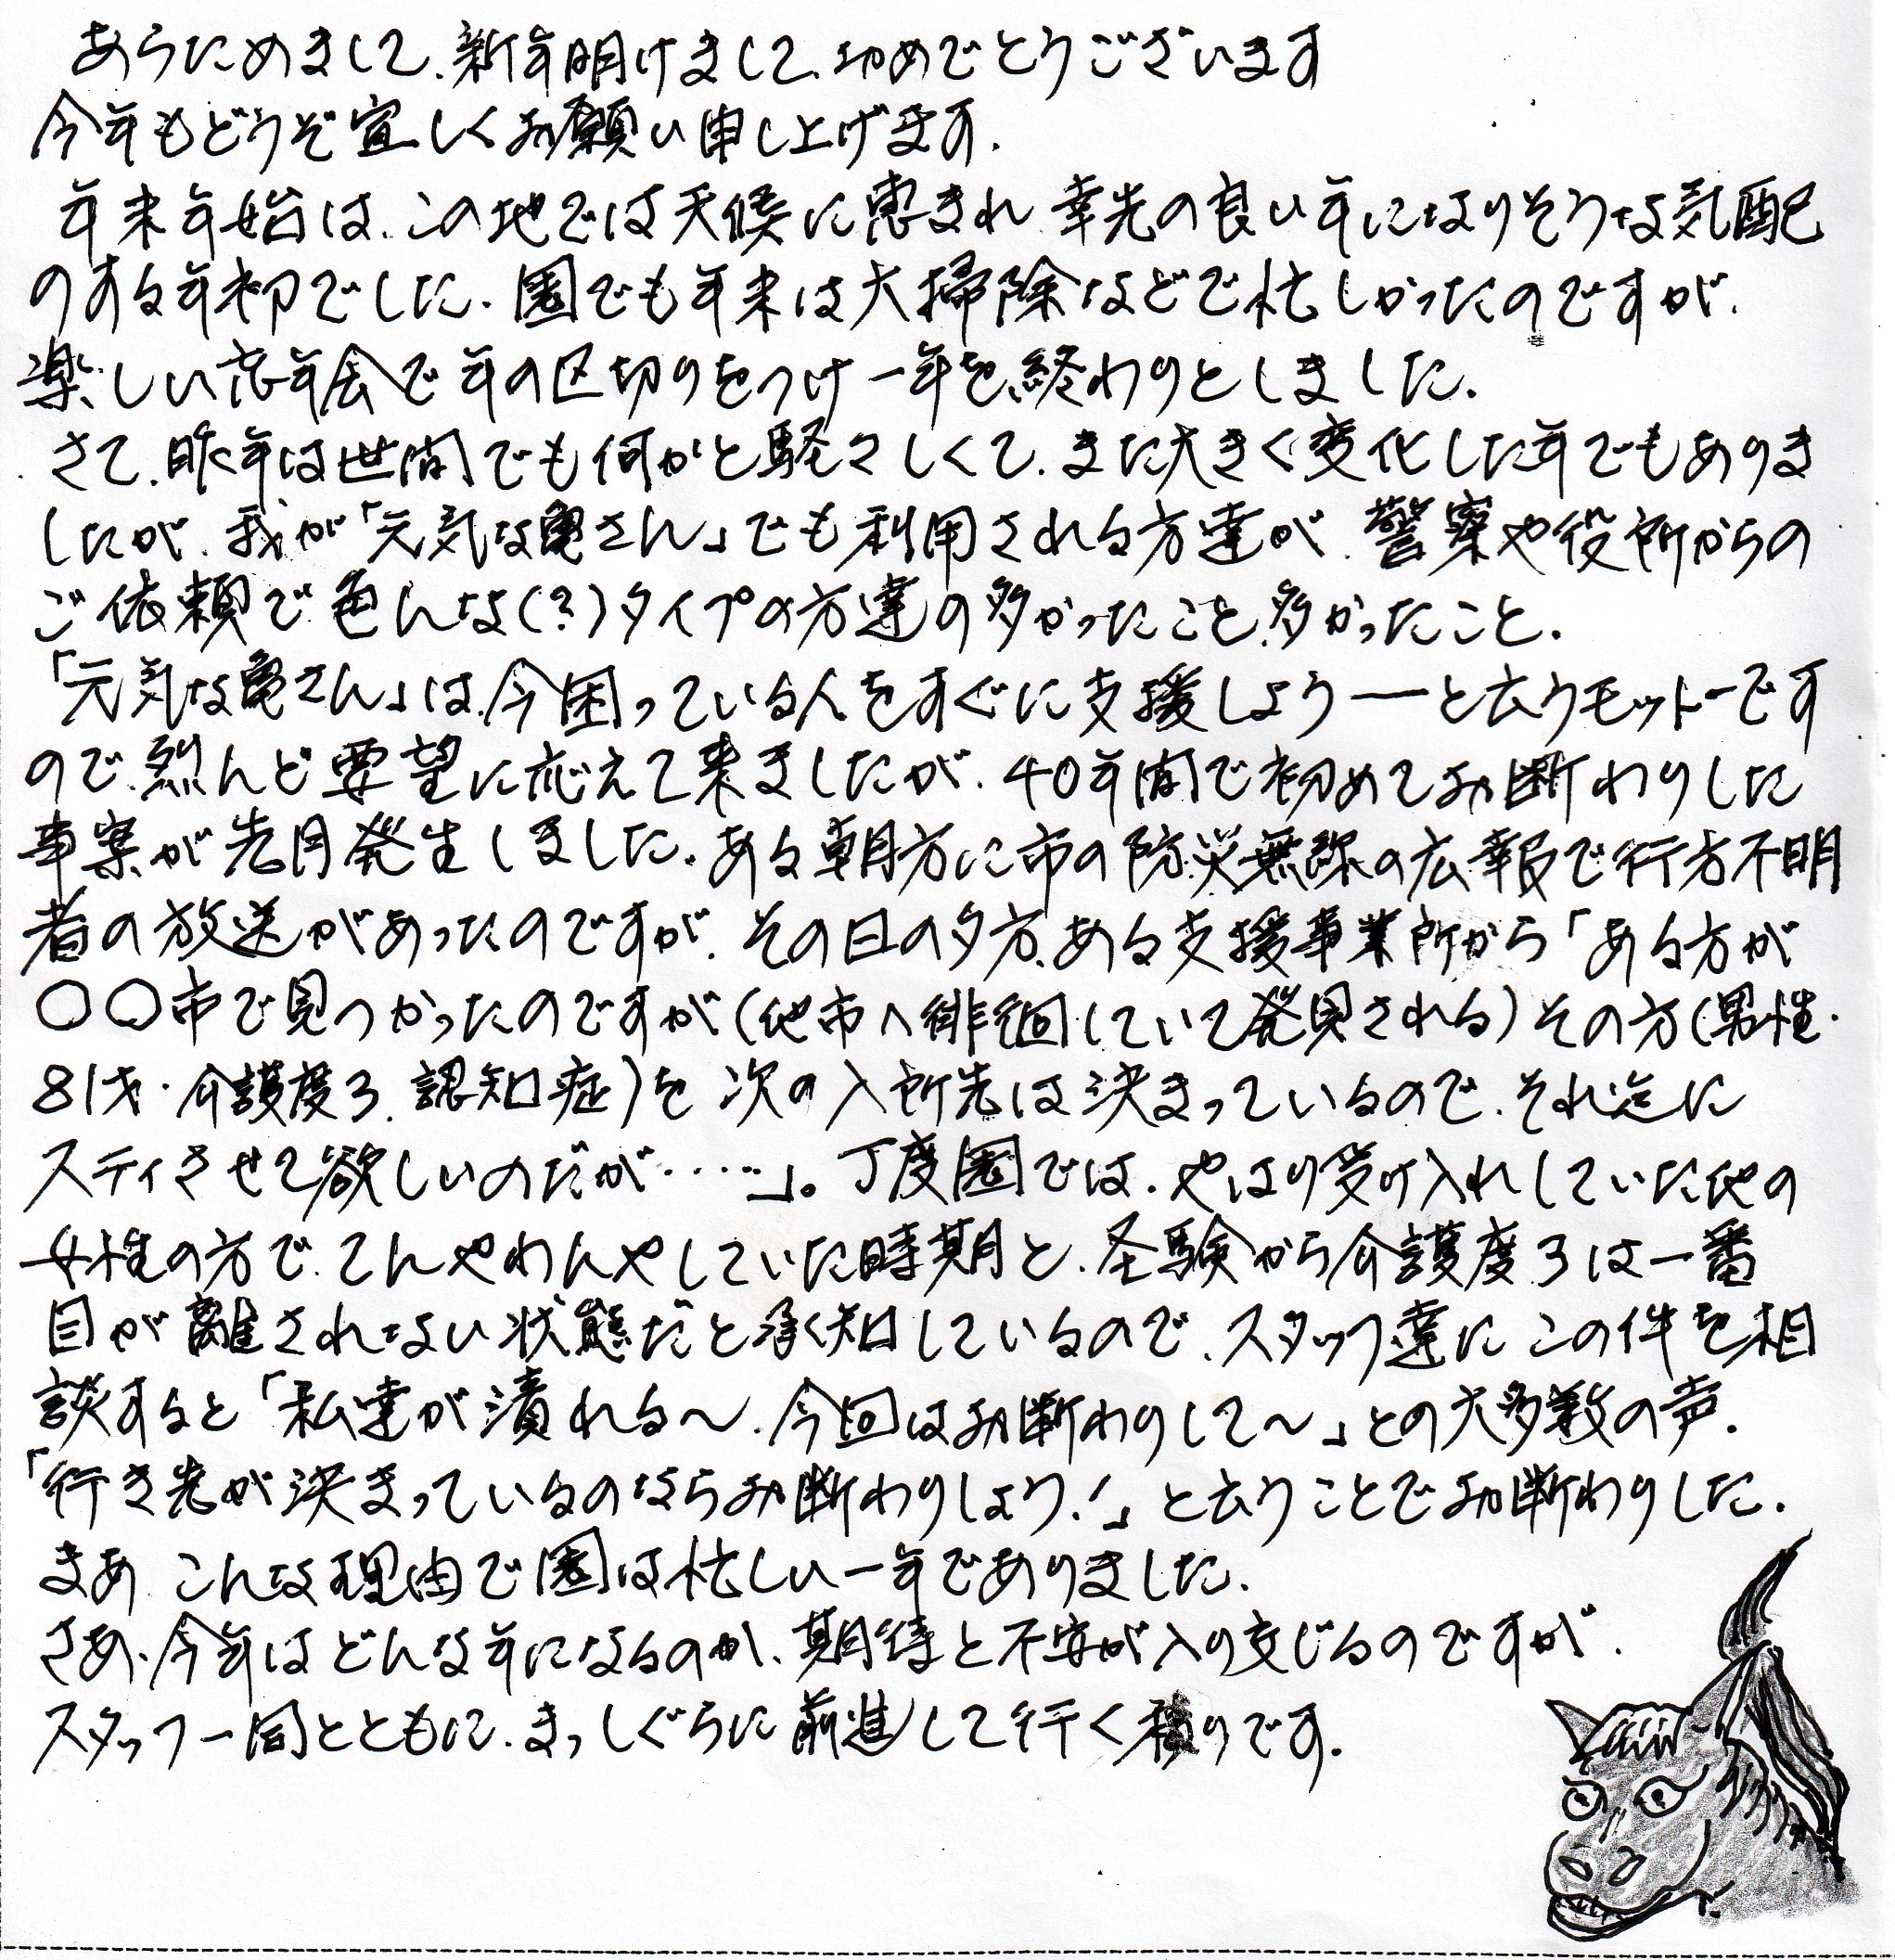 あらためまして、新年明けまして、おめでとうございます
今年もどうぞ宜しくお願い申し上げます。
年末年始は、この地では天候に恵まれ、幸先の良い年になりそうな気配
のする年初でした。園でも年末は大掃除などで忙しかったのですが、
楽しい忘年会で年の区切りをつけ一年を終わりとしました。
さて、昨年は世間でも何かと騒々しくて、また大きく変化した年でもありま
したが、我が「元気な亀さん」でも利用される方達が、警察や役所からの
ご依頼で色んな(?)タイプの方達の多かったこと、多かったこと。
「元気な亀さん」は、今困っている人をすぐに支援しよう―と云うモットーです
ので、殆んど要望に応えて来ましたが、40年間で初めてお断わりした
事案が先月発生しました。ある朝方に市の防災無線の広報で行方不明
者の放送があったのですが、その日の夕方、ある支援事業所から「ある方が
〇〇市で見つかったのですが(他市へ徘徊していて発見される)その方(男性・
81才・介護度3、認知症)を次の入所先は決まっているので、それ迄に
スティさせて欲しいのだが・・・・・」。丁度園では、やはり受け入れしていた他の
女性の方で、てんやわんやしていた時期と、経験から介護度3は一番
目が離されない状態だと承知しているので、スタッフ達にこの件を相
談すると「私達が潰れる〜、今回はお断わりして〜」との大多数の声。
「行き先が決まっているのならお断わりしよう!」と云うことでお断わりした。
まあ、こんな理由で園は忙しい一年でありました。
さあ、今年はどんな年になるのか、期待と不安が入り交じるのですが、
スタッフ一同とともに、まっしぐらに前進して行く積りです。